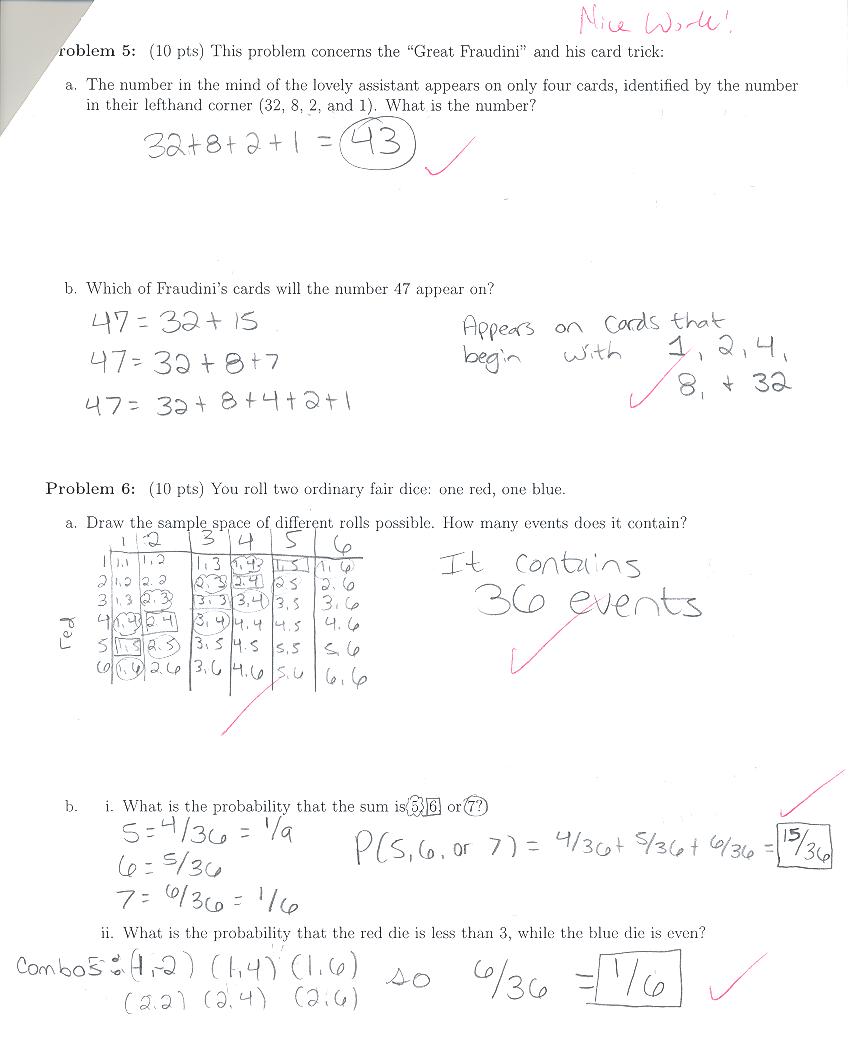 Nice Work!
roblem 5: (10 pts) This problem concerns the "Great Fraudini" and his card trick:
a. The number in the mind of the lovely assistant appears on only four cards, identified by the number
in their lefthand corner (32, 8, 2, and 1). What is the number?
32+8+2+1 = 43
b. Which of Fraudini's cards will the number 47 appear on?
47 = 32 + 15
47 = 32 + 8+7
47 = 32 + 8+4+2+1
Appears on cards that
begin with 1, 2, 4,
8, + 32
Problem 6: (10 pts) You roll two ordinary fair dice: one red, one blue.
a. Draw the sample space of different rolls possible. How many events does it contain?
1 2 3 4 5 6
1 1,1 1,2 1,3 1,4 1,5 1,6
2 1,2 2,2 2,3 2,4 2,5 2,6
3 1,3 2,3 3,3 3,4 3,5 3,6
4 1,4 2,4 3,4 4,4 4,5 4,6
5 1,5 2,5 3,5 4,5 5,5 5,6
6 1,6 2,6 3,6 4,6 5,6 6,6
red
It contains
36 events
b. i. What is the probability that the sum is 5, 6 or 7?
5 = 4/36 = 1/9
6 = 5/36
7 = 6/36 = 1/6
P(5,6, or 7) = 4/36 + 5/36 + 6/36 = 15/36
ii. What is the probability that the red die is less than 3, while the blue die is even?
Combos: (1,2) (1,4) (1,6)
(2,2) (2,4) (2,6)
so 6/36 = 1/6